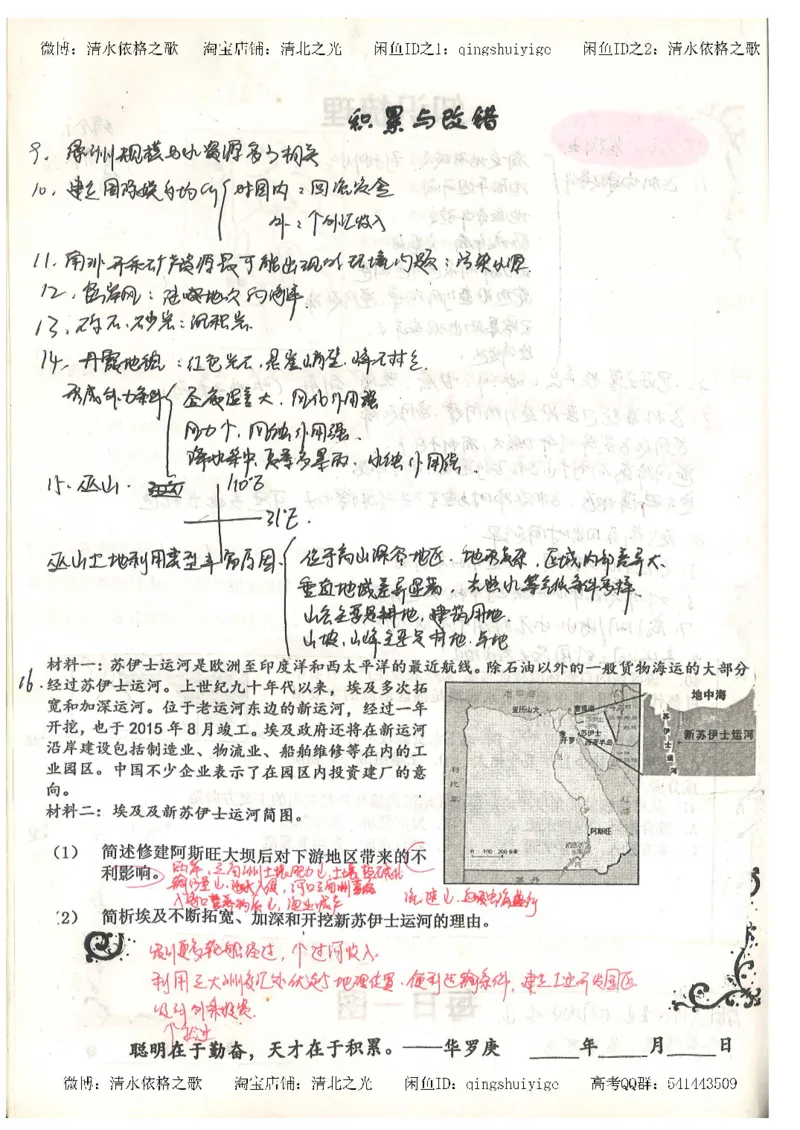 微博：清水依格之歌 淘宝店铺：清北之光 闲鱼ID之1：qingshuiyige 闲鱼ID之2：清水依格之歌
积累与改错
9. 绿洲规模与水资源多少相关
10. 建立国际娱乐 对国内：回流资金
外：个外汇收入
11. 南非开采矿产资源最可能出现的环境问题：污染水源
12. 离岸风：
13. 砾石、砂岩：沉积岩
14. 丹霞地貌：红色岩石，悬崖峭壁
形成外力条件 昼夜温差大，风化作用强
风力个，风蚀作用强.
降水集中，夏季多暴雨，水蚀作用强
15. 巫山.
110°E
31°E.
巫山土地利用类型丰富原因. 位于高山深谷地区，地形复杂，区域内部差异大.
垂直地域差异显著，水热水等条件多样.
山谷主要是耕地，建筑用地.
山坡，山峰主要是林地、草地
材料一：苏伊士运河是欧洲至印度洋和西太平洋的最近航线。除石油以外的一般货物海运的大部分
16. 经过苏伊士运河。上世纪九十年代以来，埃及多次拓
宽和加深运河。位于老运河东边的新运河，经过一年
开挖，也于 2015 年 8 月竣工。埃及政府还将在新运河
沿岸建设包括制造业、物流业、船舶维修等在内的工
业园区。中国不少企业表示了在园区内投资建厂的意
向。
材料二：埃及及新苏伊士运河简图。
地中海
苏伊士运河
新苏伊士运河
亚历山大
塞得港
开罗
苏伊士
西奈半岛
利比亚
红海
阿斯旺
苏丹
0 100 200千米
(1) 简述修建阿斯旺大坝后对下游地区带来的不
利影响。
(2) 简析埃及不断拓宽、加深和开挖新苏伊士运河的理由。
吸引更多轮船经过，个过河收入.
利用三大洲交汇处优越的地理位置，便利运输条件，建立工业开发园区
吸引外来投资.
个就业
聪明在于勤奋，天才在于积累。——华罗庚 ____年____月____日
微博：清水依格之歌 淘宝店铺：清北之光 闲鱼ID：qingshuiyige 高考QQ群：541443509